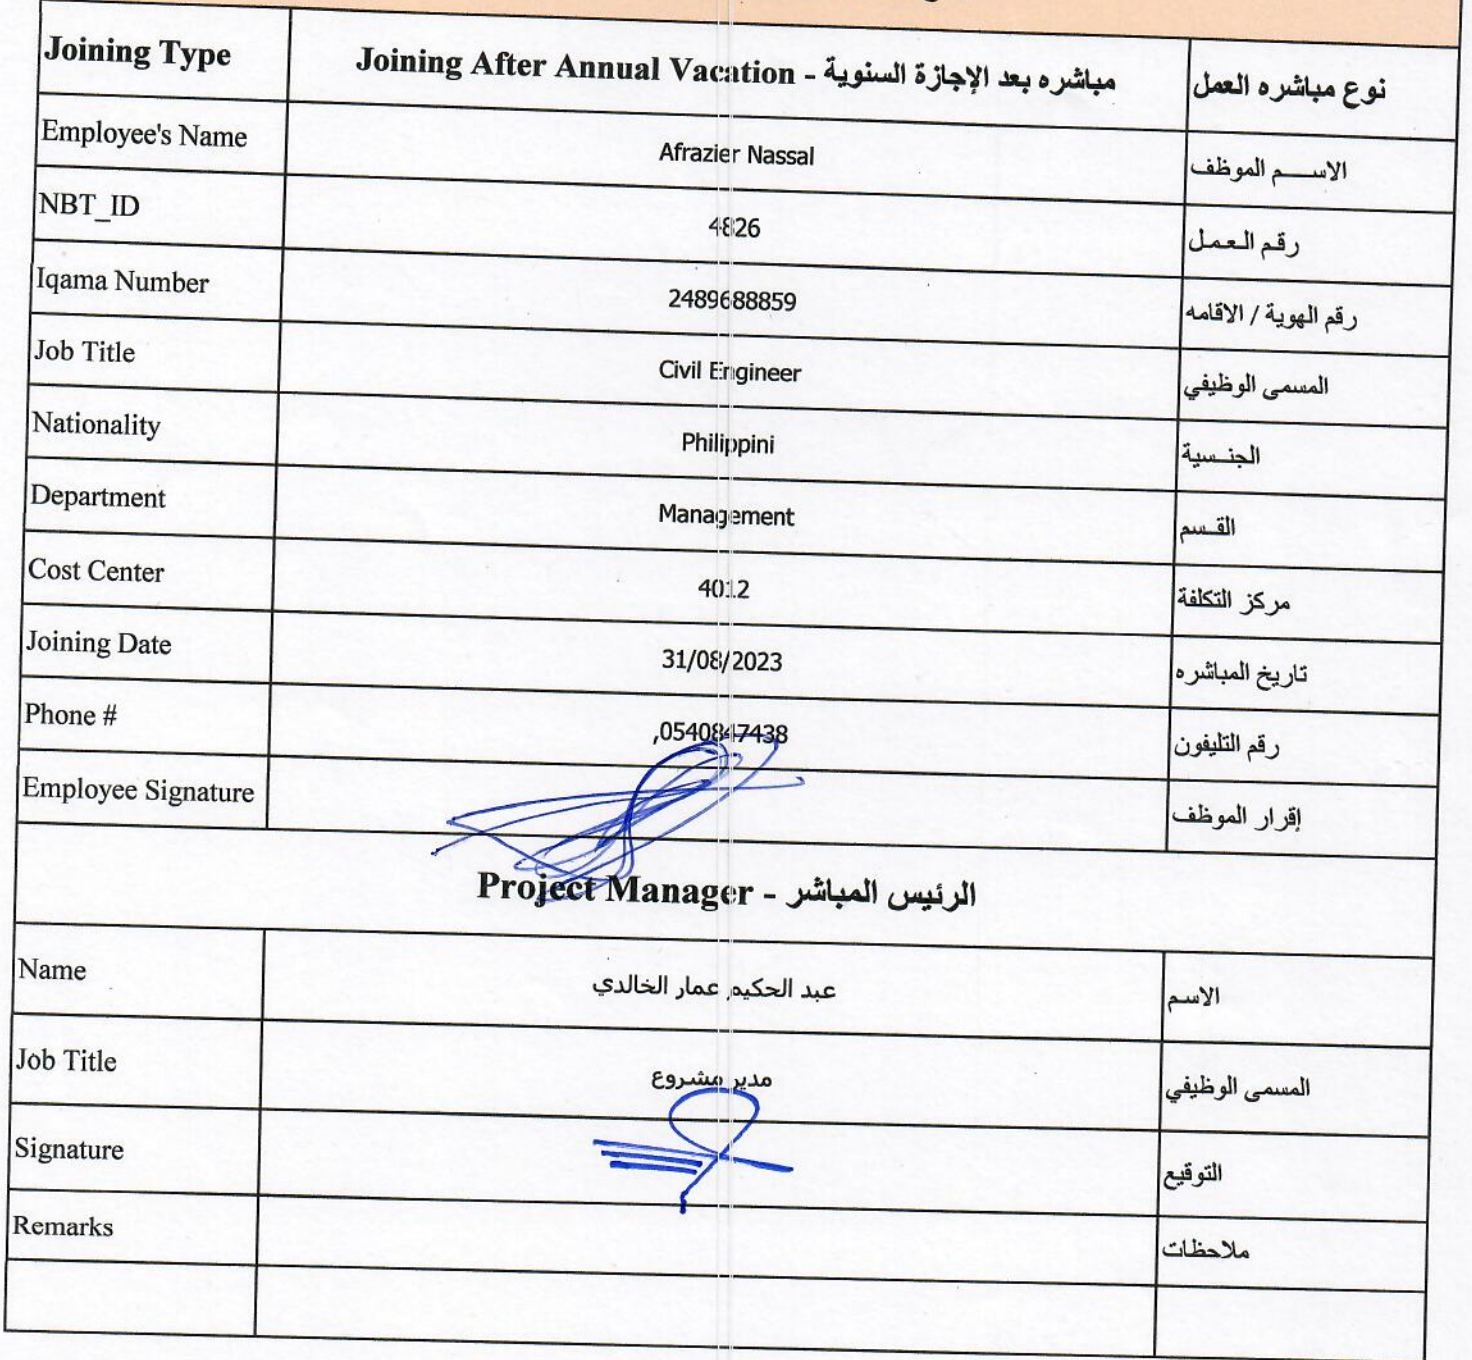 Joining Type Joining After Annual Vacation - مباشره بعد الإجازة السنوية نوع مباشره العمل
Employee's Name Afrazier Nassal الاســـم الموظف
NBT_ID 4826 رقم العمل
Iqama Number 2489688859 رقم الهوية / الاقامه
Job Title Civil Engineer المسمى الوظيفي
Nationality Philippini الجنسية
Department Management القسم
Cost Center 4012 مركز التكلفة
Joining Date 31/08/2023 تاريخ المباشره
Phone # ,0540847438 رقم التليفون
Employee Signature إقرار الموظف
Project Manager - الرئيس المباشر
Name عبد الحكيم عمار الخالدي الاسم
Job Title مدير مشروع المسمى الوظيفي
Signature التوقيع
Remarks ملاحظات